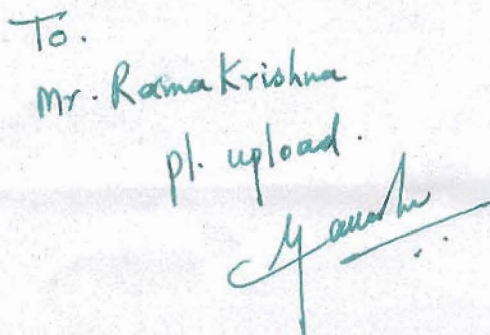 To.
Mr. Rama Krishna
pl. upload.